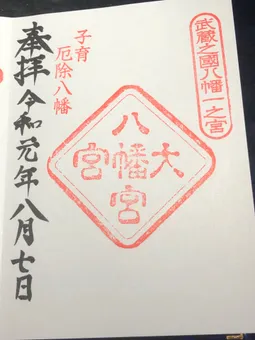 武蔵之國八幡一之宮
子育
厄除八幡
八幡宮
大宮
奉拝令和元年八月七日